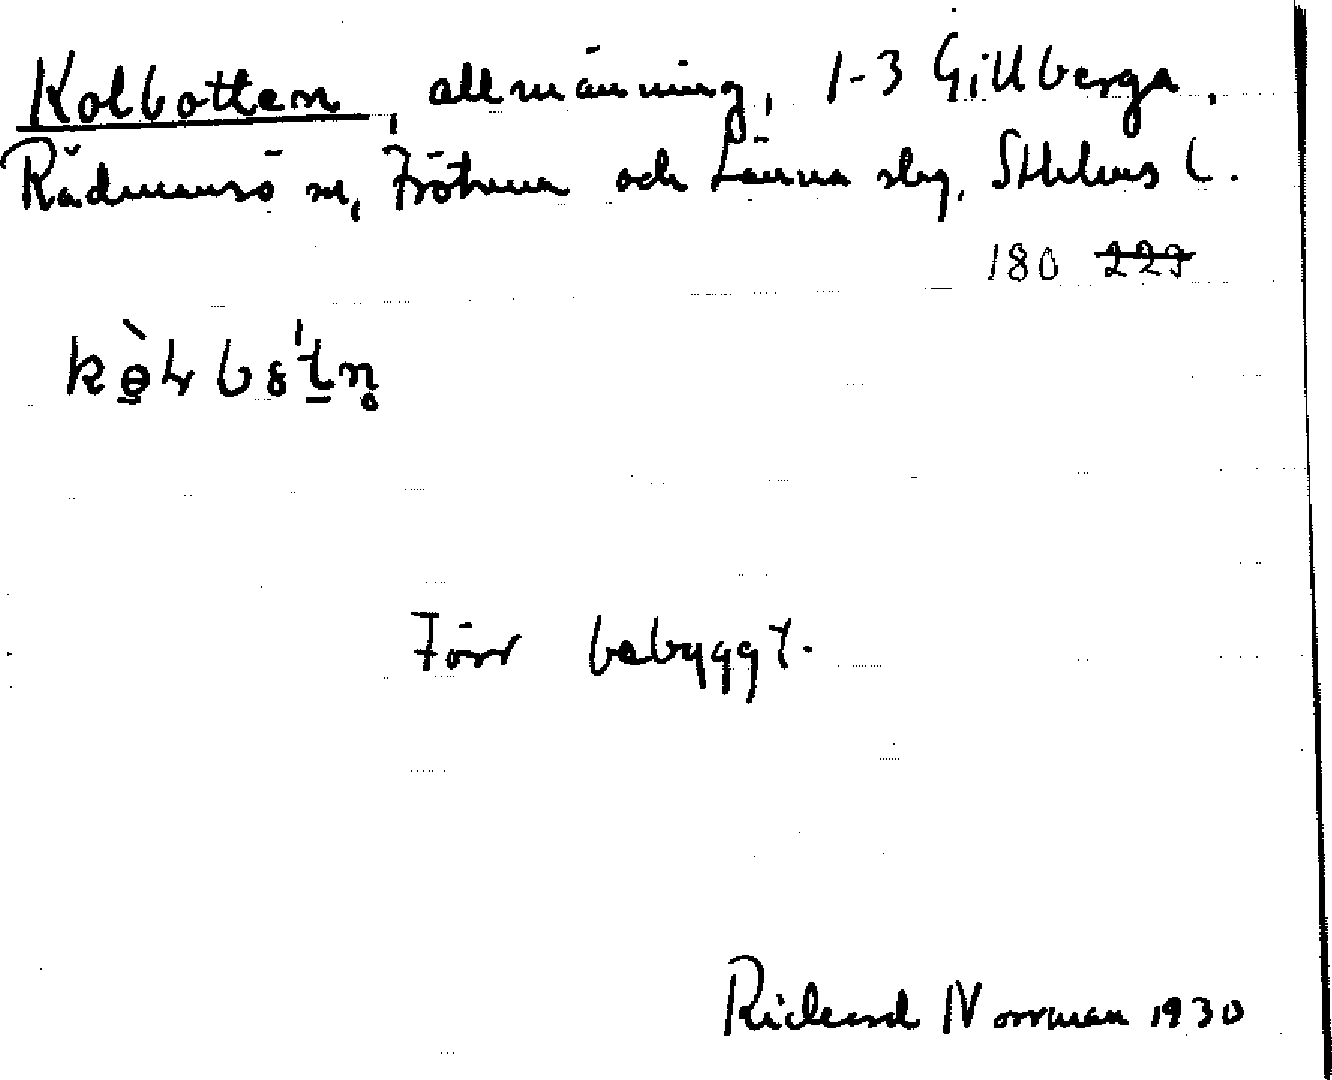 Kolbotten, allmänning, 1-3 Gillberga,
Rådmansö sn, Frötuna och Länna slg, Sthlms l.
180 229
Förr bebyggt.
Rickard Norrman 1930